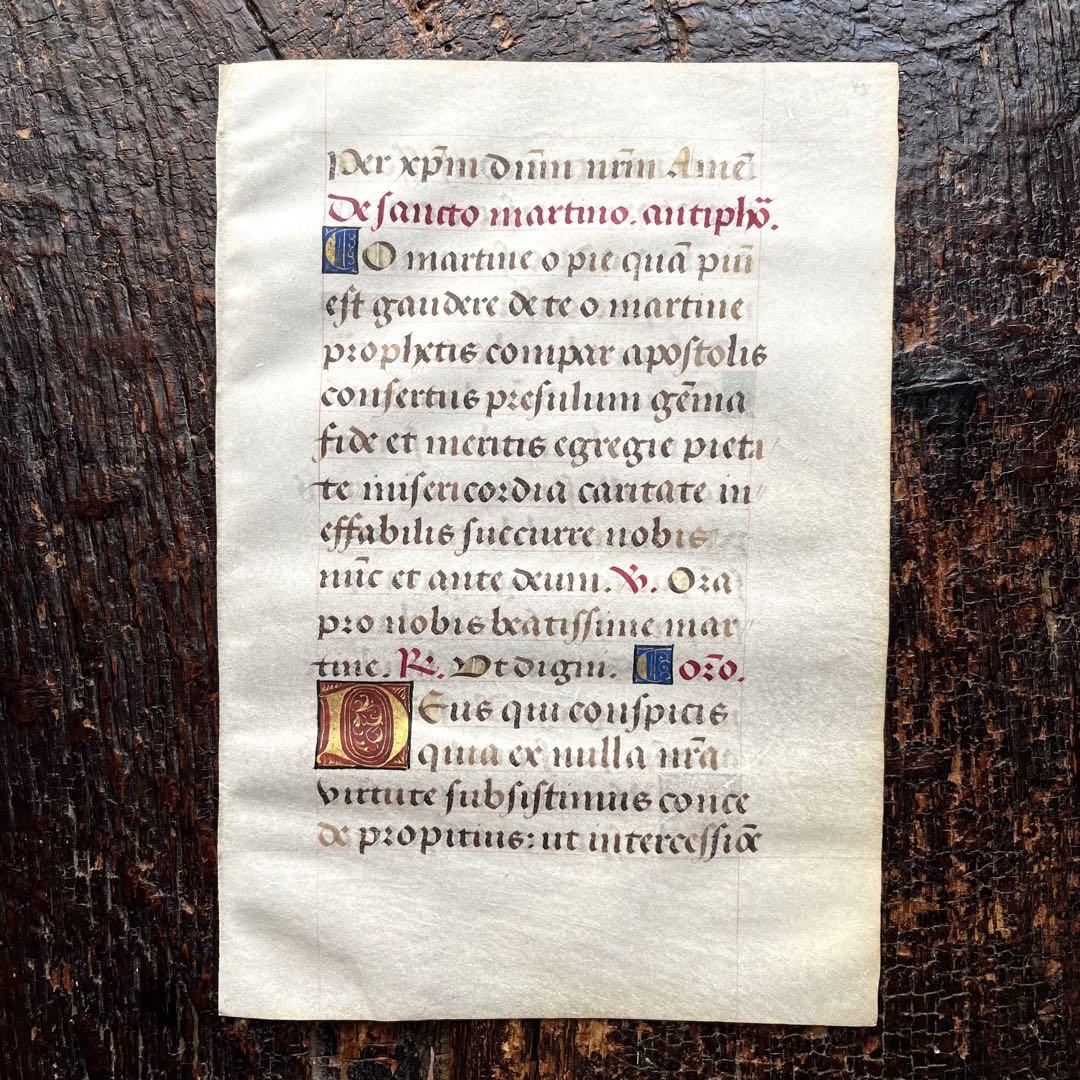 Per xp̄m dn̄m nr̄m Ame͂
De sancto martino. antiphō.
O martine o pie quā piū
est gaudere de te o martine
prophetis compar apostolis
consertus presulum gēma
fide et meritis egregie pieta
te misericordia caritate in
effabilis succurre nobis
nūc et ante deum. ℣. Ora
pro nobis beatissime mar
tine. ℟. Ut digni. orō.
Deus qui conspicis
quia ex nulla nr̄a
virtute subsistimus conce
de propitius: ut intercessiōe